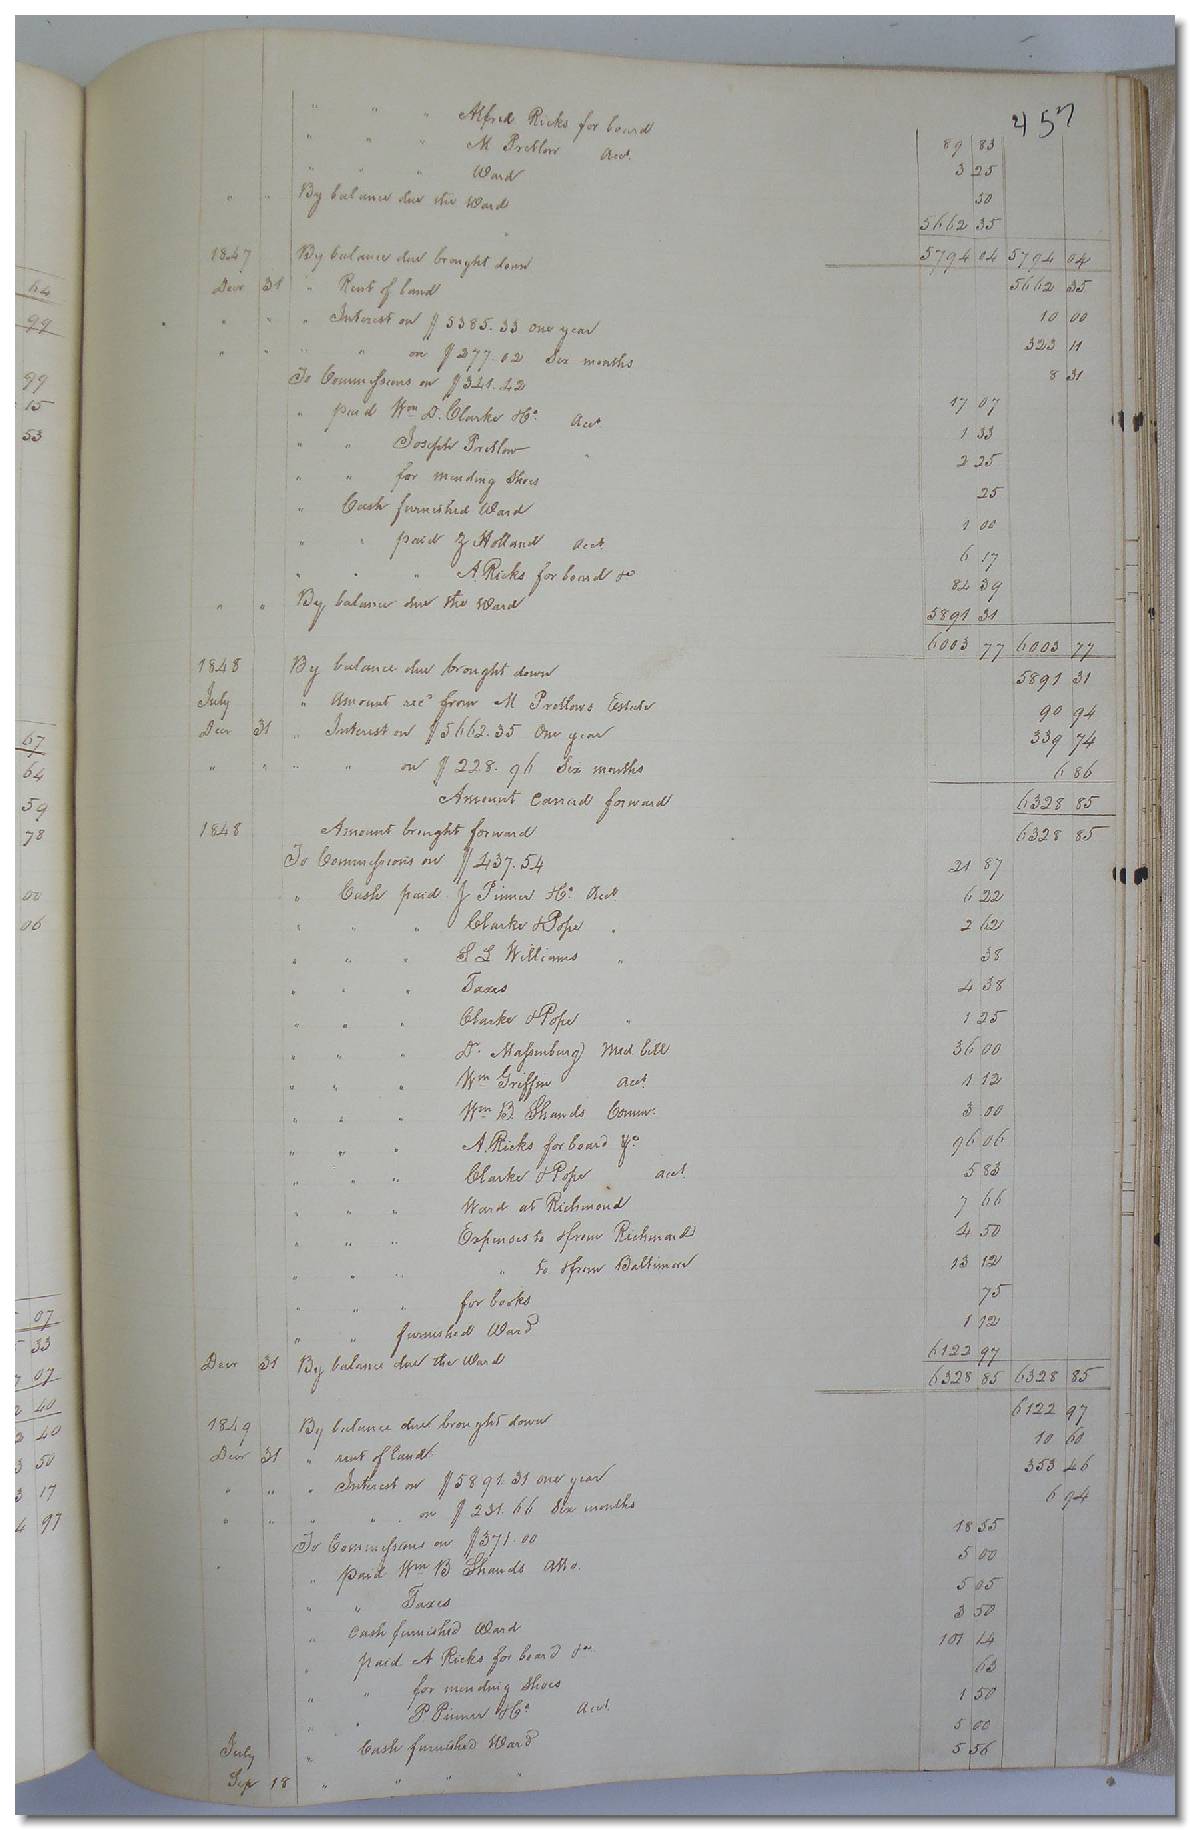 457
" " " Alfred Ricks for board 89 83
" " " M Pretlow Acct. 3 25
" " " Ward 50
" " By balance due the Ward 5662 35
5794 04 5794 04
1847 By balance due brought down 5662 35
Decr 31 " Rent of land 10 00
" " " Interest on $5385.33 one year 323 11
" " " " on $277.02 Six months 8 31
To Commissions on $341.42 17 07
" paid Wm D. Clarke & Co. Acct 1 33
" " Joseph Pretlow " 2 25
" " for mending Shoes 25
" Cash furnished Ward 1 00
" " paid Z Holland Acct. 6 17
" " " A. Ricks for board &c 82 39
" " By balance due the Ward 5891 31
6003 77 6003 77
1848 By balance due brought down 5891 31
July " Amount recd from M Pretlows Estate 90 94
Decr 31 " Interest on $5662.35 One year 339 74
" " " " on $228.96 Six months 6 86
Amount Carried forward 6328 85
1848 Amount brought forward 6328 85
To Commissions on $437.54 21 87
" Cash paid J Pinner & Co. Acct. 6 22
" " " Clarke & Pope " 2 62
" " " S L Williams " 38
" " " Taxes 4 38
" " " Clarke & Pope " 1 25
" " " Dr. Massenburg Med bill 36 00
" " " Wm Griffin Acct. 1 12
" " " Wm B. Shands Commr. 3 00
" " " A. Ricks for board &c 96 06
" " " Clarke & Pope acct. 5 83
" " " Ward at Richmond 7 66
" " " Expenses to & from Richmond 4 50
" " " " to & from Baltimore 13 12
" " " for books 75
" " furnished Ward 1 12
Decr 31 By balance due the Ward 6122 97
6328 85 6328 85
1849 By balance due brought down 6122 97
Decr 31 " rent of land 10 60
" " " Interest on $5891.31 one year 353 46
" " " " on $231.66 Six months 6 94
To Commissions on $371.00 18 55
" paid Wm B Shands Atto. 5 00
" " Taxes 5 05
" Cash furnished Ward 3 50
" paid A Ricks for board &c 101 14
" " for mending Shoes 63
" " P Pinner & Co. Acct. 1 50
July " Cash furnished Ward 5 00
Sep 18 " " " " 5 56